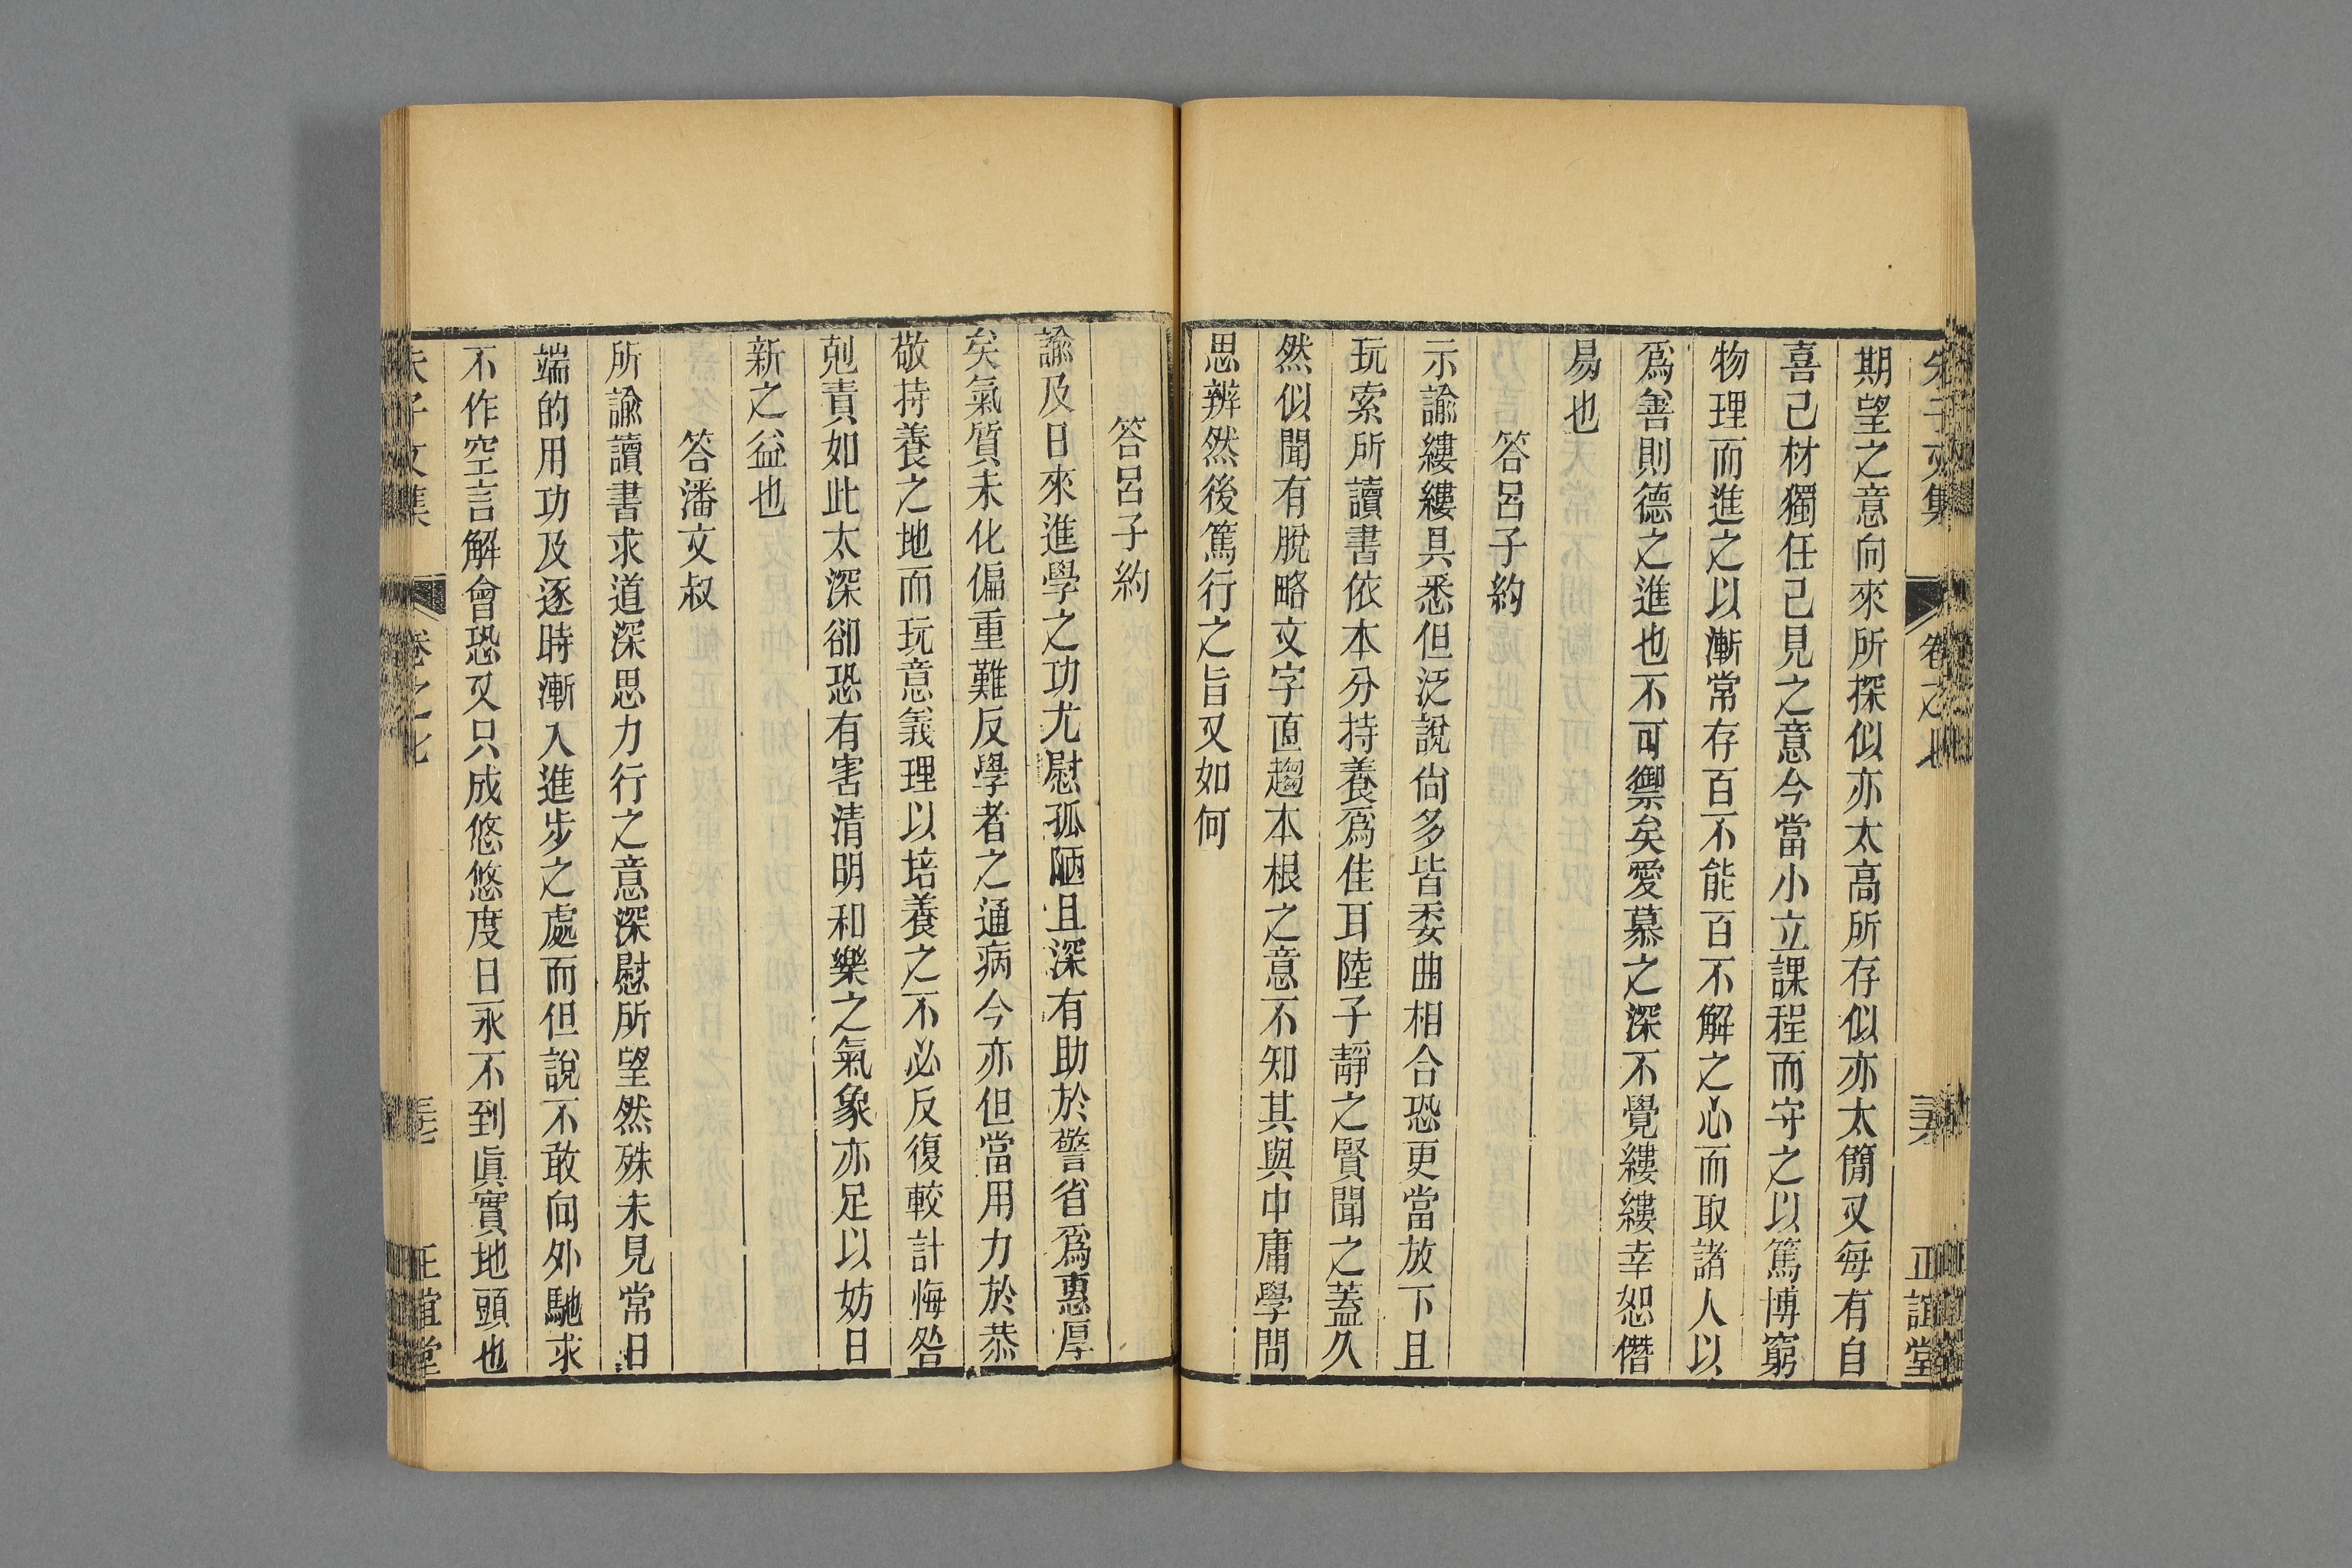 朱子文集 卷之七 三六 正誼堂
期望之意向來所探似亦太高所存似亦太簡又每有自
喜己材獨任己見之意今當小立課程而守之以篤博窮
物理而進之以漸常存百不能百不解之心而取諸人以
爲善則德之進也不可禦矣愛慕之深不覺縷縷幸恕僭
易也
答呂子約
示諭縷縷具悉但泛說尙多皆委曲相合恐更當放下且
玩索所讀書依本分持養爲佳耳陸子靜之賢聞之蓋久
然似聞有脫略文字直趨本根之意不知其與中庸學問
思辨然後篤行之旨又如何
答呂子約
諭及日來進學之功尤慰孤陋且深有助於警省爲惠厚
矣氣質未化偏重難反學者之通病今亦但當用力於恭
敬持養之地而玩意義理以培養之不必反復較計悔咎
剋責如此太深卻恐有害清明和樂之氣象亦足以妨日
新之益也
答潘文叔
所諭讀書求道深思力行之意深慰所望然殊未見常日
端的用功及逐時漸入進步之處而但說不敢向外馳求
不作空言解會恐又只成悠悠度日永不到眞實地頭也
朱子文集 卷之七 三七 正誼堂